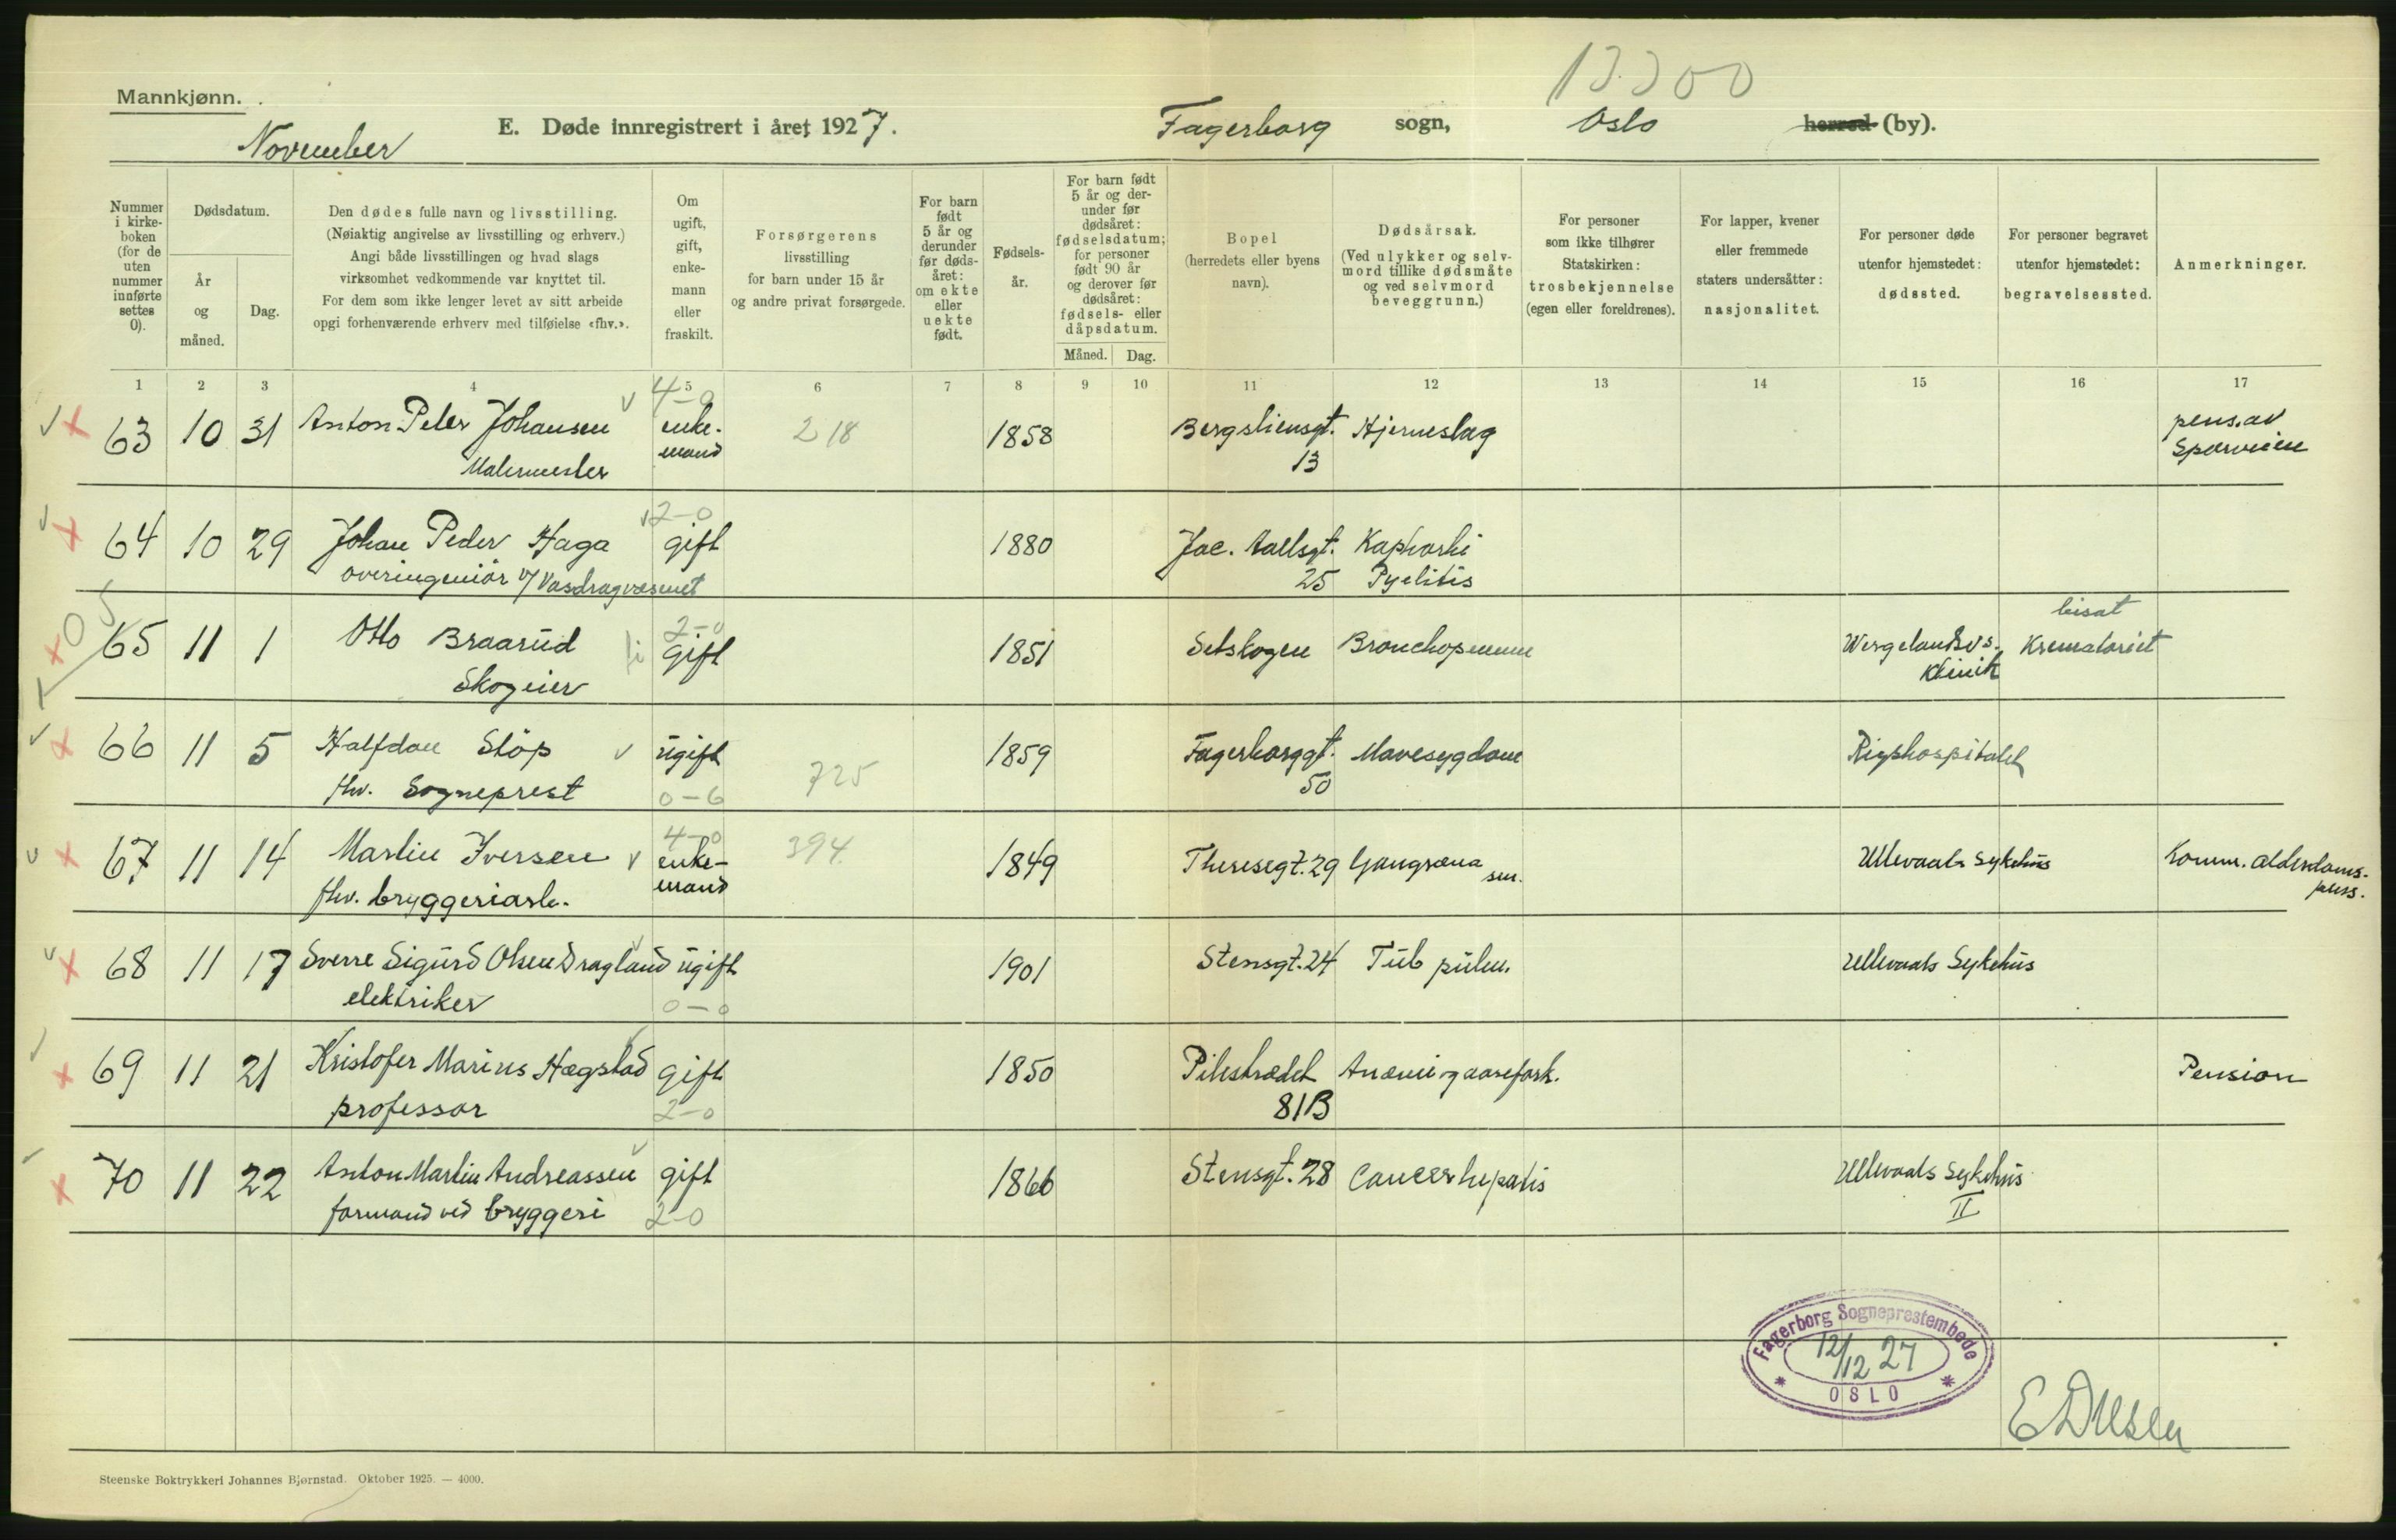 13300
Mannkjønn.
E. Døde innregistrert i året 1927. Fagerborg sogn, Oslo herred (by).
November
Nummer i kirke-boken (for de uten nummer innførte settes 0).
Dødsdatum.
År og måned.
Dag.
Den dødes fulle navn og livsstilling.
(Nøiaktig angivelse av livsstilling og erhverv.)
Angi både livsstillingen og hvad slags
virksomhet vedkommende var knyttet til.
For dem som ikke lenger levet av sitt arbeide
opgi forhenværende erhverv med tilføielse «fhv.».
Om ugift, gift, enke-mann eller fraskilt.
Forsørgerens
livsstilling
for barn under 15 år
og andre privat forsørgede.
For barn født 5 år og derunder før døds-året: om ekte eller uekte født.
Fødsels-år.
For barn født 5 år og der-under før dødsåret: fødselsdatum; for personer født 90 år og derover før dødsåret: fødsels- eller dåpsdatum.
Måned. Dag.
Bopel
(herredets eller byens
navn).
Dødsårsak.
(Ved ulykker og selv-
mord tillike dødsmåte
og ved selvmord
beveggrunn.)
For personer
som ikke tilhører
Statskirken:
trosbekjennelse
(egen eller foreldrenes).
For lapper, kvener
eller fremmede
staters undersåtter:
nasjonalitet.
For personer døde
utenfor hjemstedet:
dødssted.
For personer begravet
utenfor hjemstedet:
begravelsessted.
Anmerkninger.
1 2 3 4 5 6 7 8 9 10 11 12 13 14 15 16 17
4-0
63 10 31 Anton Peter Johansen enke- 218 1858 Bergsliensgt. Hjerneslag pens. av
Malermester mand 13 Sporveien
2-0
64 10 29 Johan Peder Haga gift 1880 Jac. Aallsgt.
overingeniör v/ Vasdragvæsenet 25 Pyelitis
2-0 bisat
65 11 1 Otto Braarud gift 1851 Setskogen Bronchopneum Wergelandsvs. Krematoriet
Skogeier Klinik
66 11 5 Halfdan Stöp ugift 725 1859 Fagerborggt. Mavesygdom Rigshospitalet
fhv. Sogneprest 0-6 50
4-0
67 11 14 Martin Iversen enke- 394 1849 Theresegt. 29 Gangræna sen. Ullevaals Sykehus Komm. alderdoms-
fhv. bryggeriarb. mand pens.
68 11 17 Sverre Sigurd Olsen Dragland ugift 1901 Stensgt. 24 Tub pulm. Ullevaals Sykehus
elektriker 0-0
69 11 21 Kristofer Marius Hægstad gift 1850 Pilestrædet Anæmi og aarefork. Pension
professor 2-0 81B
70 11 22 Anton Martin Andreassen gift 1866 Stensgt. 28 Cancer hepatis Ullevaals Sykehus
formand ved bryggeri 2-0 II
Fagerborg Sogneprestembede
12/12 27
OSLO
Steenske Boktrykkeri Johannes Bjørnstad. Oktober 1925. — 4000.